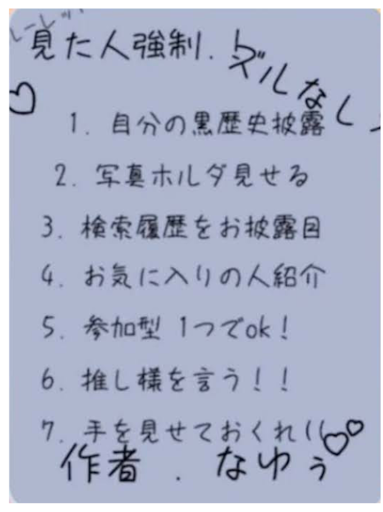 見た人強制. ズルなし
1. 自分の黒歴史披露
2. 写真ホルダ見せる
3. 検索履歴をお披露目
4. お気に入りの人紹介
5. 参加型 1つでok!
6. 推し様を言う!!
7. 手を見せておくれ((
作者 . なゆぅ